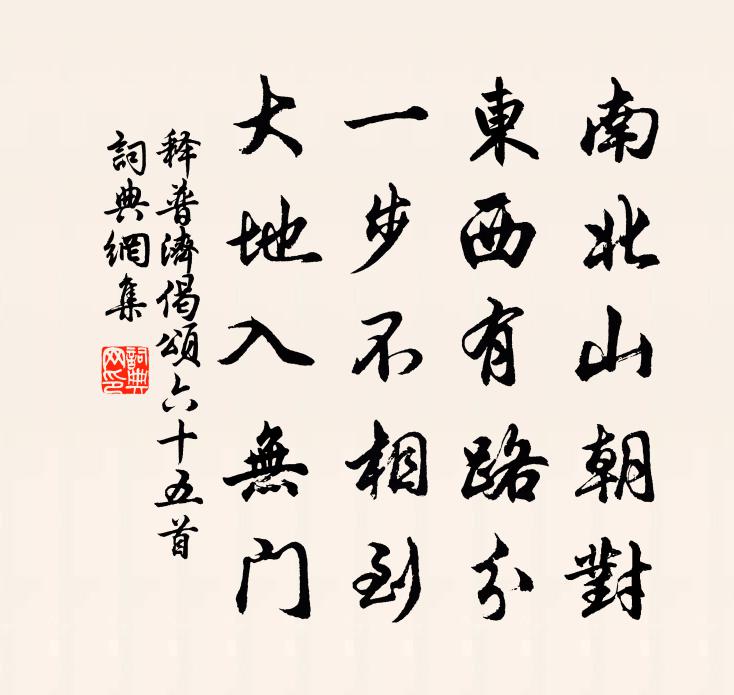 南北山朝對
東西有路分
一步不相到
大地入無门
释普濟偈頌六十五首
詞典網集
詞典网印